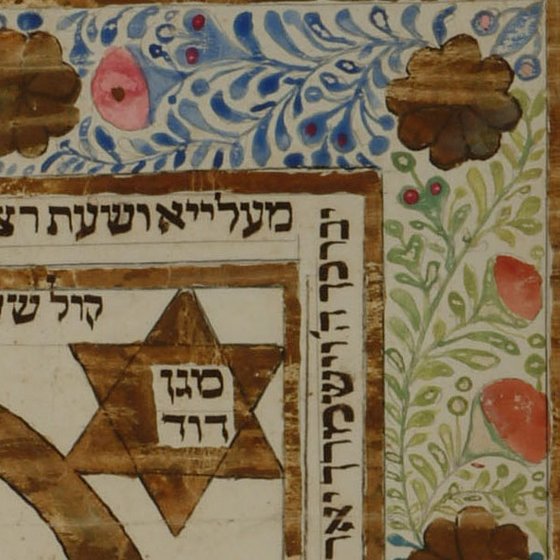 מעלייא ושעת רצ
יברכך ה׳ וישמרך יאר
קול שש
מגן
דוד